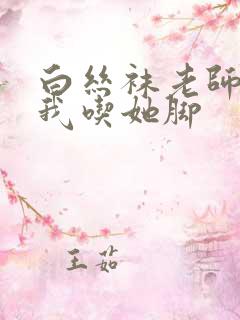 白丝袜老师
我喫她脚
王茹